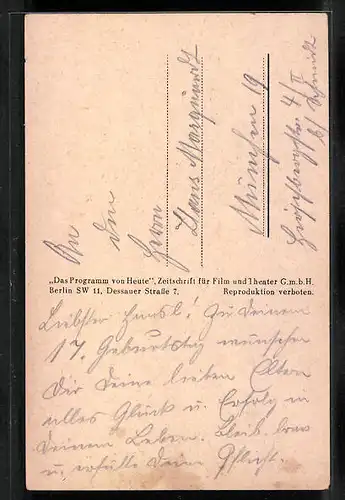 An
den
Herrn
Hans Marquardt
München 19
Hirschbergstr. 4/II
b/ Schmidt
„Das Programm von Heute“, Zeitschrift für Film und Theater G.m.b.H.
Berlin SW 11, Dessauer Straße 7. Reproduktion verboten.
Liebster Hansl! Zu Deinem
17. Geburtstag wünschen
Dir Deine lieben Eltern
alles Glück u. Erfolg in
Deinem Leben. Bleib brav
u. erfülle Deine Pflicht.